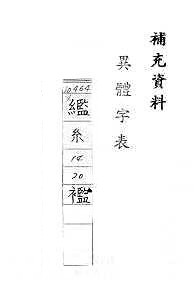 補充資料
異體字表
10464
繿
糸
14
20
襤